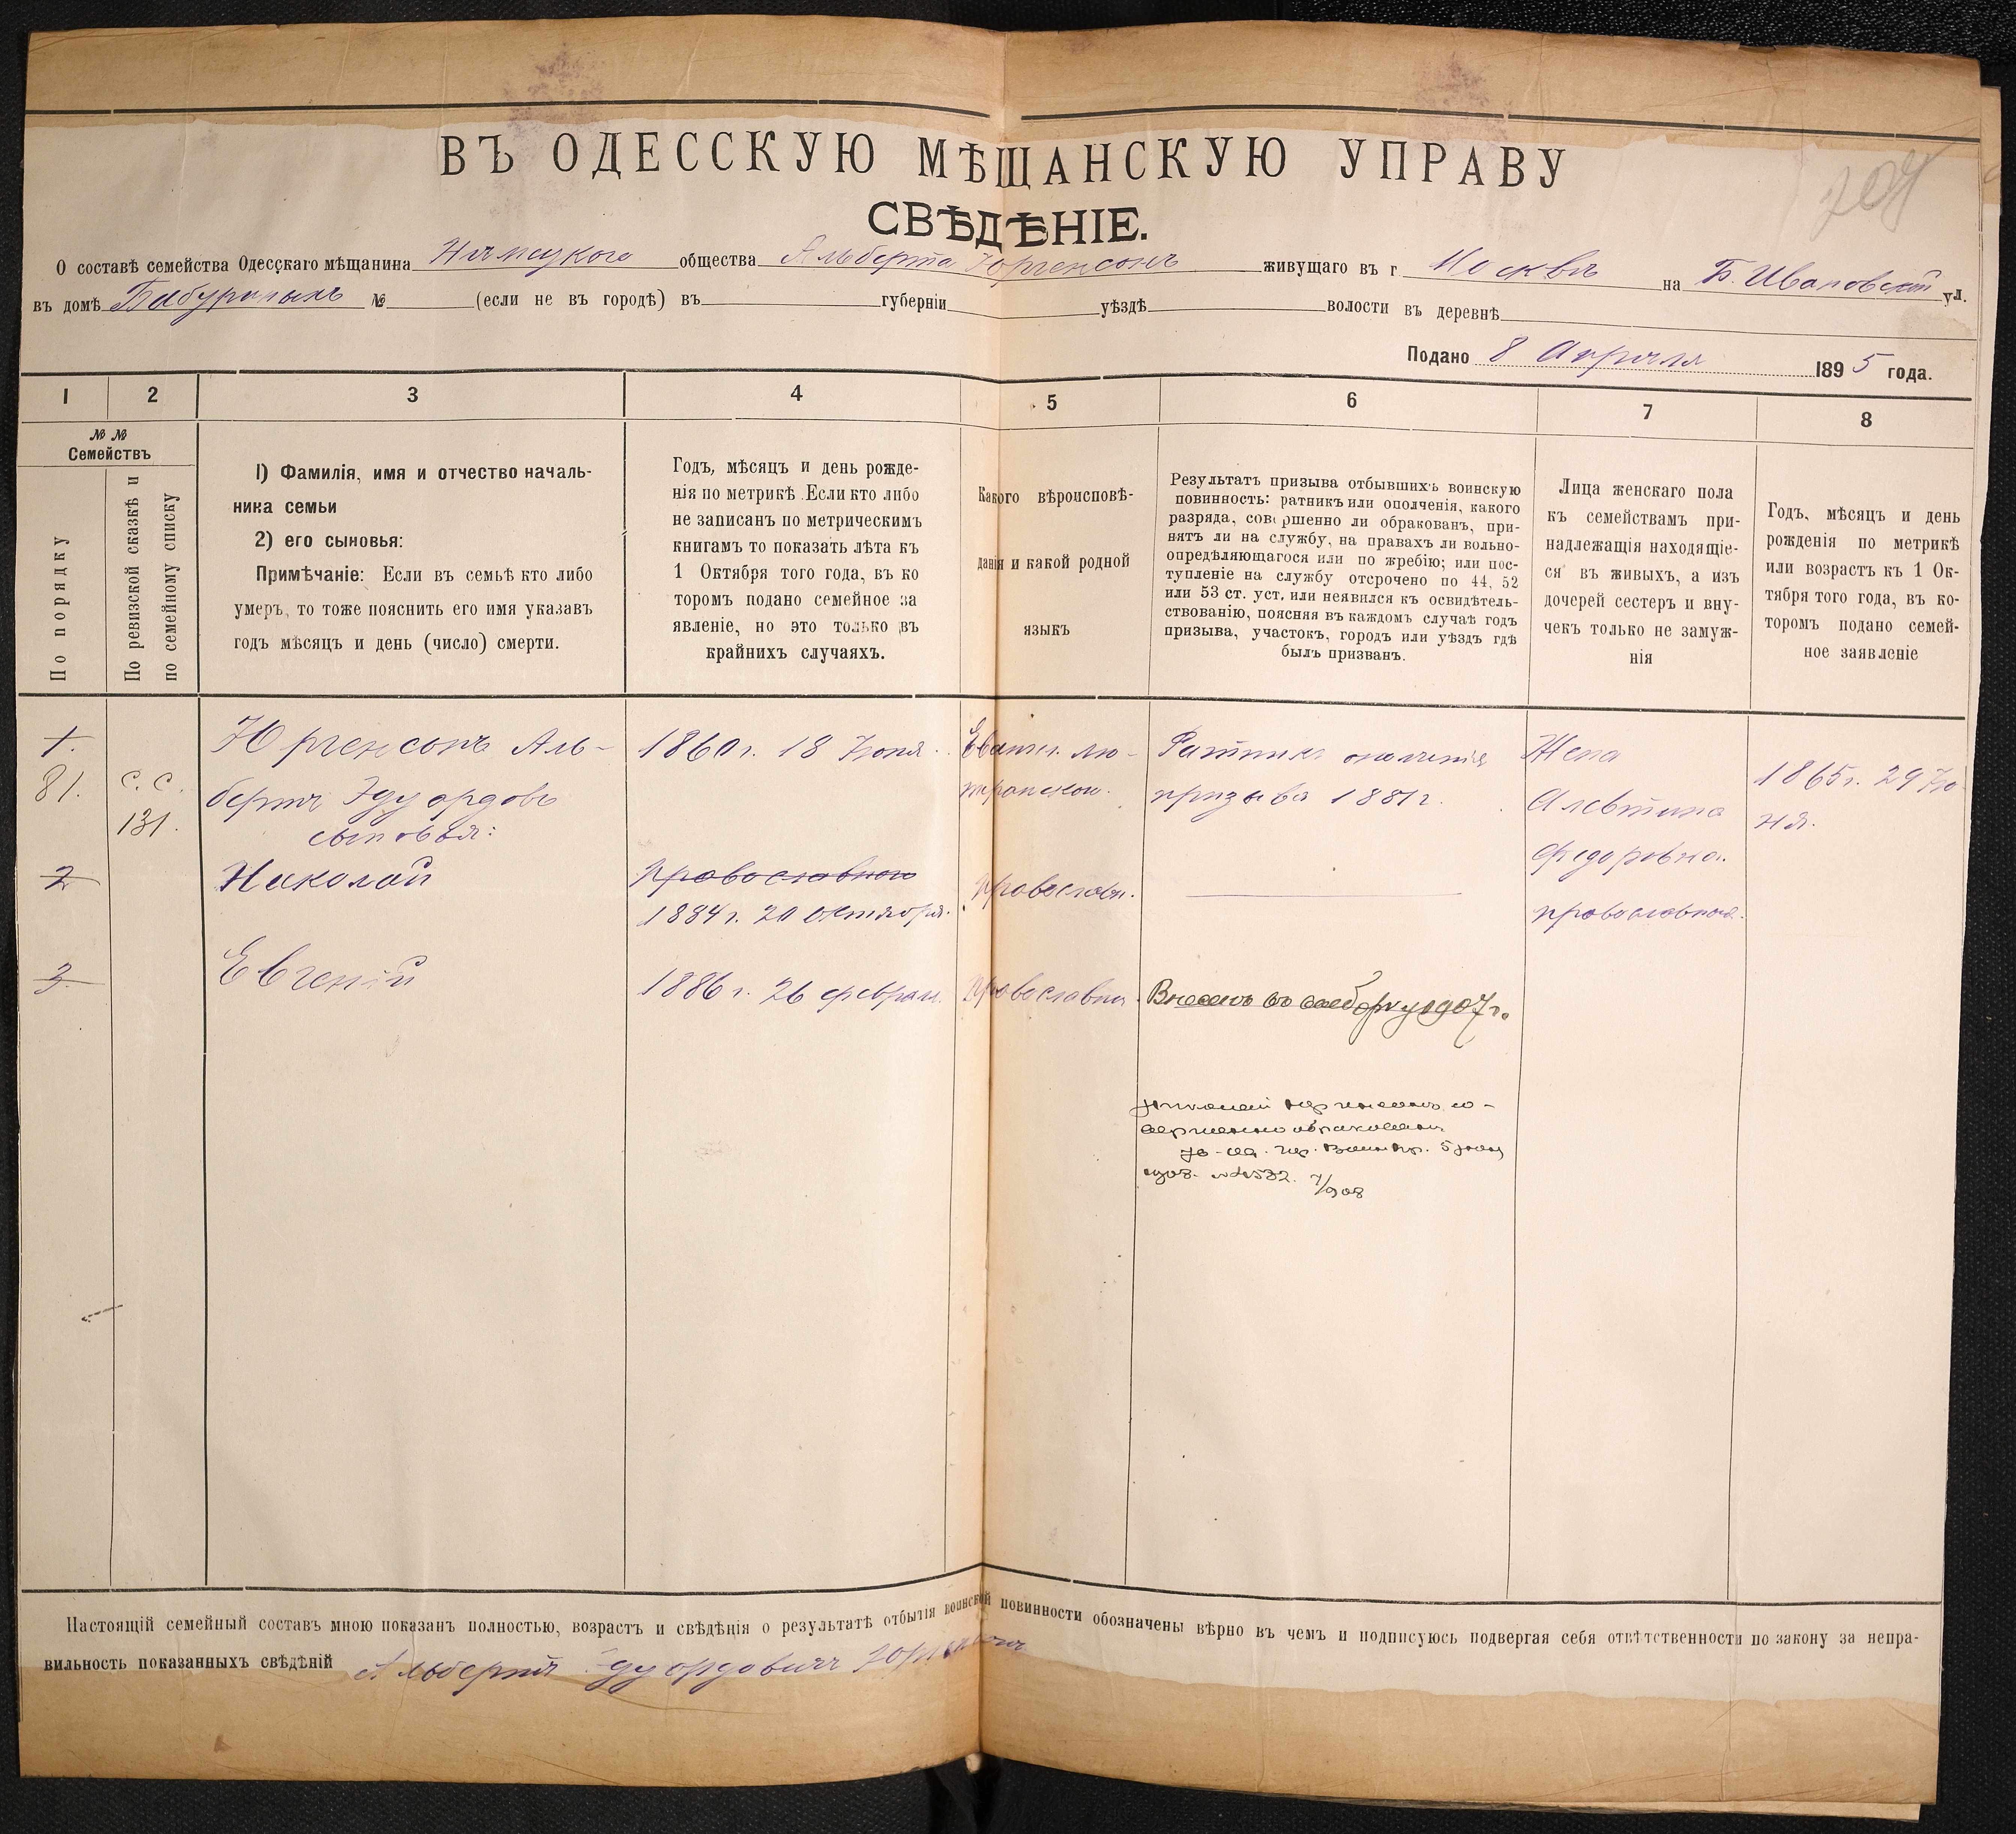 ВЪ ОДЕССКУЮ МѢЩАНСКУЮ УПРАВУ
707
СВѢДѢНІЕ.
О составѣ семейства Одесскаго мѣщанина Нѣмецкого общества Альберта Юргенсонъ живущаго въ г Москвѣ на Б. Ивановской ул.
въ домѣ № (если не въ городѣ) въ губерніи уѣздѣ волости въ деревнѣ
Подано 8 Апрѣля 1895 года.
1 2 3 4 5 6 7 8
№ №
Семействъ
По порядку
По ревизской сказкѣ и
по семейному списку
1) Фамилія, имя и отчество началь-
ника семьи
2) его сыновья:
Примѣчаніе: Если въ семьѣ кто либо
умеръ, то тоже пояснить его имя указавъ
годъ мѣсяцъ и день (число) смерти.
Годъ, мѣсяцъ и день рожде-
нія по метрикѣ. Если кто либо
не записанъ по метрическимъ
книгамъ то показать лѣта къ
1 Октября того года, въ ко
торомъ подано семейное за
явленіе, но это только въ
крайнихъ случаяхъ.
Какого вѣроисповѣ-
данія и какой родной
языкъ
Результатъ призыва отбывшихъ воинскую
повинность: ратникъ или ополченія, какого
разряда, совершенно ли обракованъ, при-
нятъ ли на службу, на правахъ ли вольно-
опредѣляющагося или по жребію; или пос-
тупленіе на службу отсрочено по 44, 52
или 53 ст. уст. или неявился къ освидѣтель-
ствованію, поясняя въ каждомъ случаѣ годъ
призыва, участокъ, городъ или уѣздъ гдѣ
былъ призванъ.
Лица женскаго пола
къ семействамъ при-
надлежащія находящіе-
ся въ живыхъ, а изъ
дочерей сестеръ и вну-
чекъ только не замуж-
нія
Годъ, мѣсяцъ и день
рожденія по метрикѣ
или возрастъ къ 1 Ок-
тября того года, въ ко-
торомъ подано семей-
ное заявленіе
1.
81.
с.с.
131.
Юргенсонъ Аль-
бертъ Эдуардовъ
сыновья:
1860 г. 18 Іюня.
Евангел. лю-
теранской.
Ратникъ ополченія
призыва 1881 г.
Жена
Алевтина
Федоровна.
православная.
1865 г. 29 Ію-
ня.
2
Николай
православного
1884 г. 20 октября.
православн.
3
Евгеній
1886 г. 26 феврал.
православн.
Внесенъ въ выборку 1907 г.
Николай Юргенсонъ со-
вершенно обракованъ
№ 4532. 7/908
Настоящій семейный составъ мною показанъ полностью, возрастъ и свѣдѣнія о результатѣ отбытія воинской повинности обозначены вѣрно въ чемъ и подписуюсь подвергая себя отвѣтственности по закону за непра-
вильность показанныхъ свѣдѣній Альбертъ Эдуардовичъ Юргенсонъ